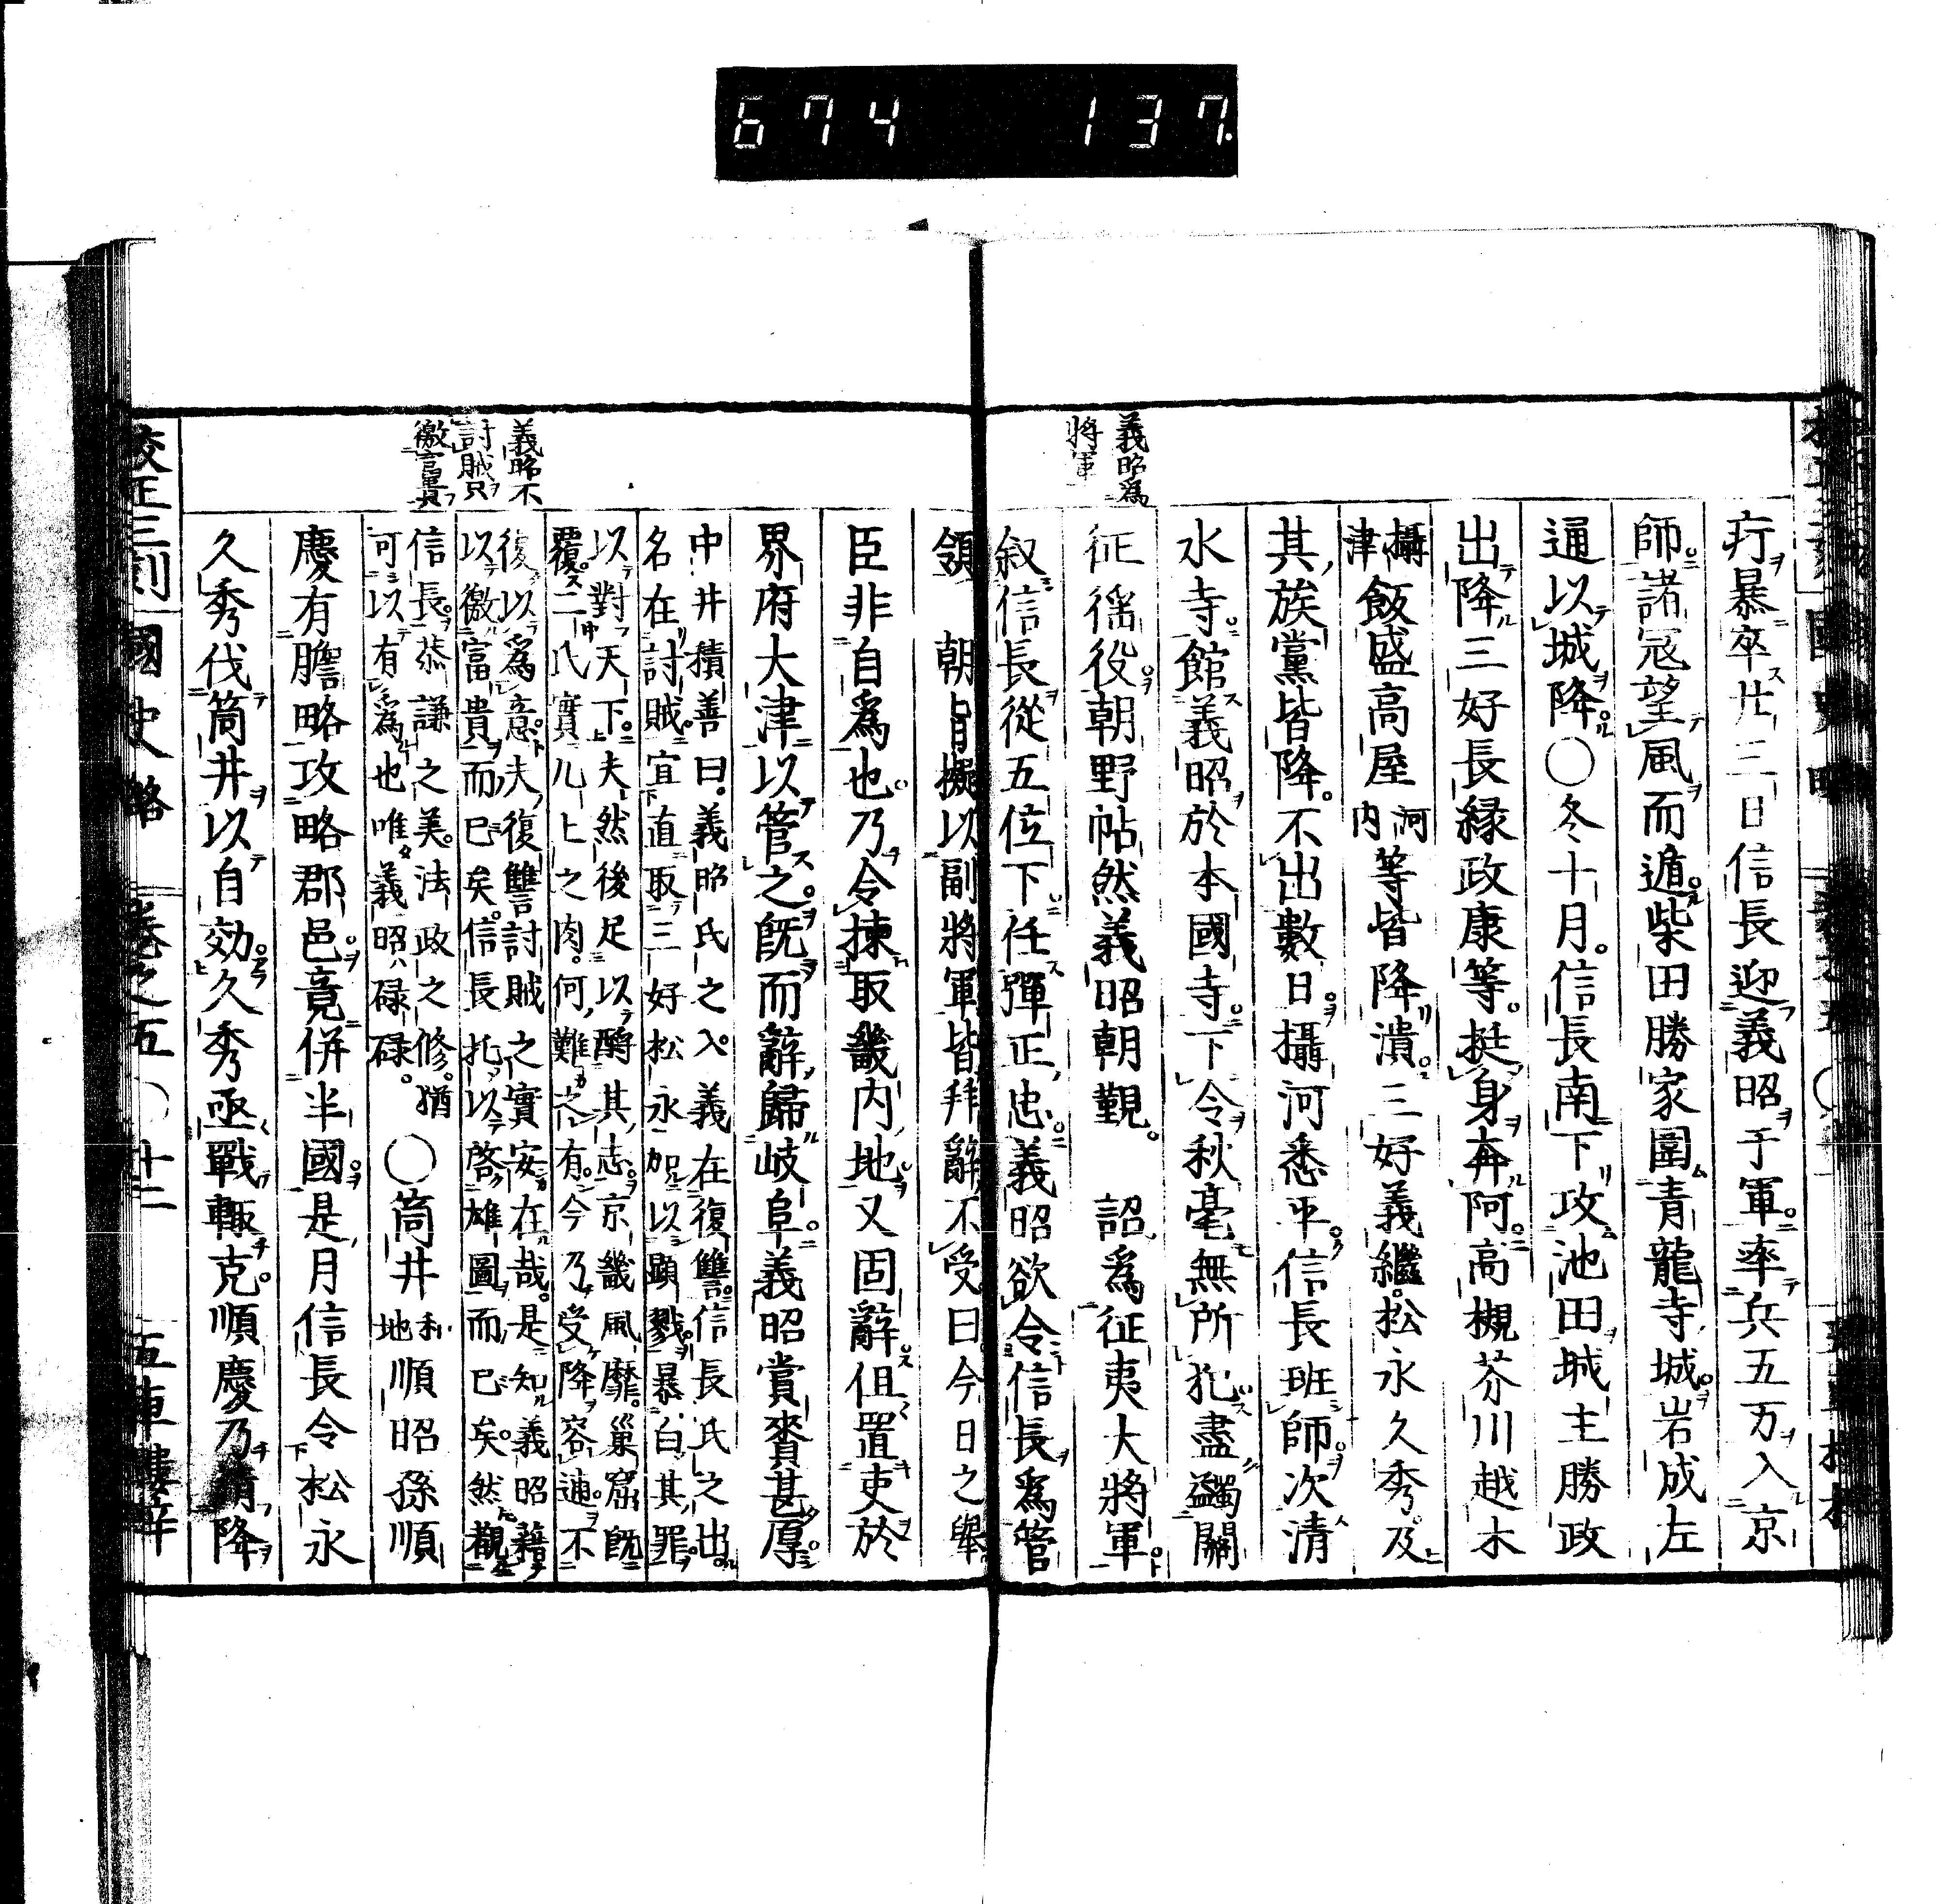 674 137
義昭爲
將軍
疔暴卒廿三日信長迎義昭于軍率兵五万入京
師諸冦望風而遁柴田勝家圍青龍寺城岩成左
通以城降〇冬十月信長南下攻池田城主勝政
出降三好長緣政康等挺身奔阿高槻芥川越木
攝津飯盛高屋河内等皆降潰三好義繼松永久秀及
其族黨皆降不出數日攝河悉平信長班師次清
水寺館義昭於本國寺下令秋毫無所犯盡蠲關
征徭役朝野帖然義昭朝覲 詔爲征夷大將軍
叙信長從五位下任彈正忠義昭欲令信長爲管
領 朝旨擬以副將軍皆拜辭不受曰今日之舉
臣非自爲也乃令揀取畿内地又固辭但置吏於
界府大津以管之既而辭歸岐阜義昭賞賚甚厚
中井積善曰義昭氏之入義在復讐信長氏之出
名在討賊宜直取三好松永加以顯戮暴白其罪
以對天下夫然後足以酹其志京畿風靡巢窟既
覆二氏實几上之肉何難之有今乃受降容逋不
復以爲意夫復讐討賊之實安在哉是知義昭藉
以徼富貴而已矣信長托以啓雄圖而已矣然觀
信長恭謙之美法政之修猶
可以有爲也唯義昭碌碌
〇筒井和地順昭孫順
慶有膽略攻略郡邑竟併半國是月信長令松永
久秀伐筒井以自効久秀亟戰輙克順慶乃請降
義昭不
討賊只
徼富貴
校正三刻 國史略 卷之五 〇廿二 五車樓梓